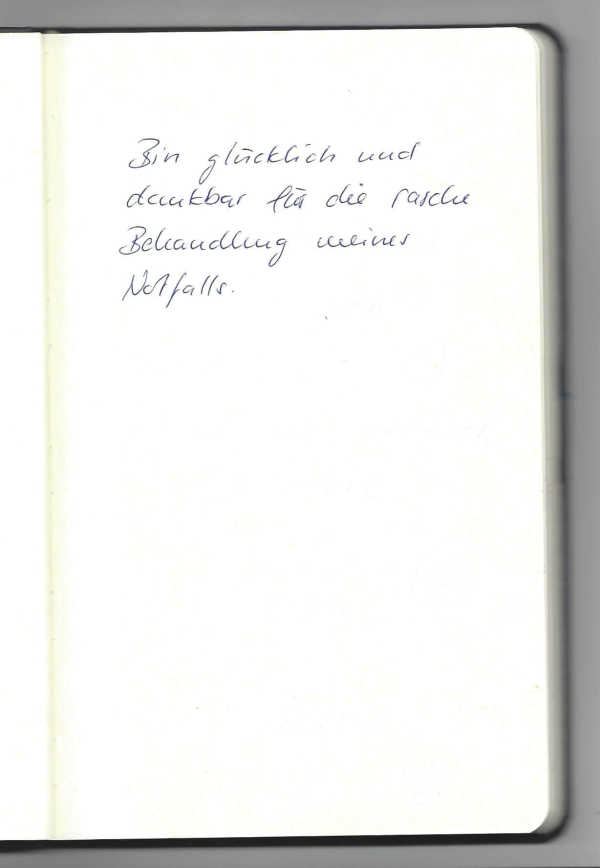 Bin glücklich und
dankbar für die rasche
Behandlung meines
Notfalls.